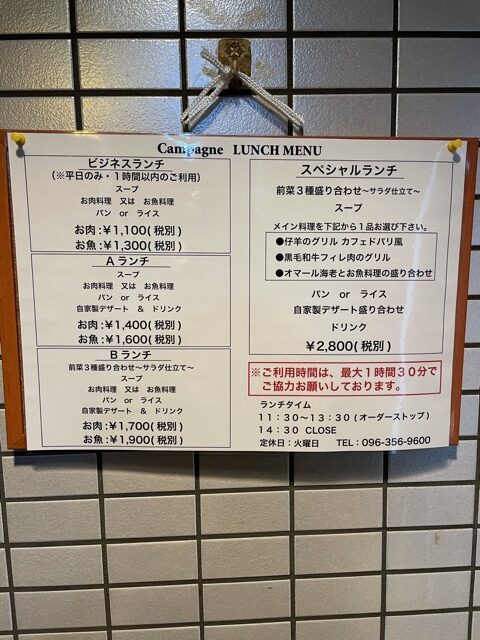 Campagne LUNCH MENU
ビジネスランチ
(※平日のみ・1時間以内のご利用)
スープ
お肉料理 又は お魚料理
パン or ライス
お肉:¥1,100(税別)
お魚:¥1,300(税別)
Aランチ
スープ
お肉料理 又は お魚料理
パン or ライス
自家製デザート & ドリンク
お肉:¥1,400(税別)
お魚:¥1,600(税別)
Bランチ
前菜3種盛り合わせ〜サラダ仕立て〜
スープ
お肉料理 又は お魚料理
パン or ライス
自家製デザート & ドリンク
お肉:¥1,700(税別)
お魚:¥1,900(税別)
スペシャルランチ
前菜3種盛り合わせ〜サラダ仕立て〜
スープ
メイン料理を下記から1品お選び下さい。
●仔羊のグリル カフェドパリ風
●黒毛和牛フィレ肉のグリル
●オマール海老とお魚料理の盛り合わせ
パン or ライス
自家製デザート盛り合わせ
ドリンク
¥2,800(税別)
※ご利用時間は、最大1時間30分で
ご協力お願いしております。
ランチタイム
11:30〜13:30(オーダーストップ)
14:30 CLOSE
定休日:火曜日 TEL:096-356-9600